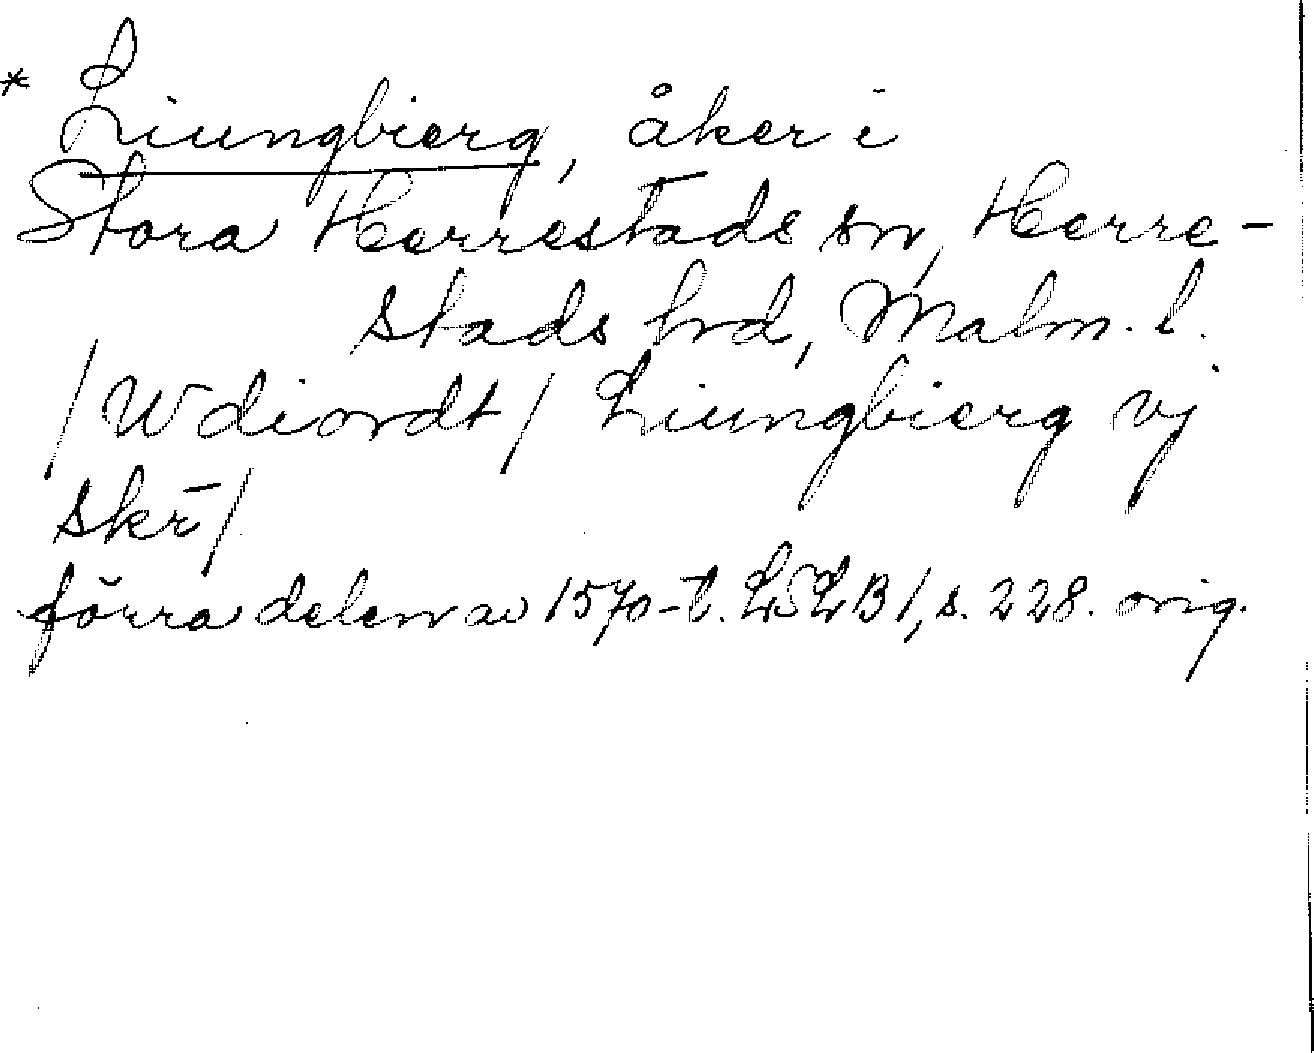 * Liungbierg, åker i
Stora Herrestads sn, Herre-
stads hrd, Malm. l.
/Wdiordt/ Liungbierg vj
skr̄/
förra delen av 1570-t. LSLB 1, s. 228. orig.